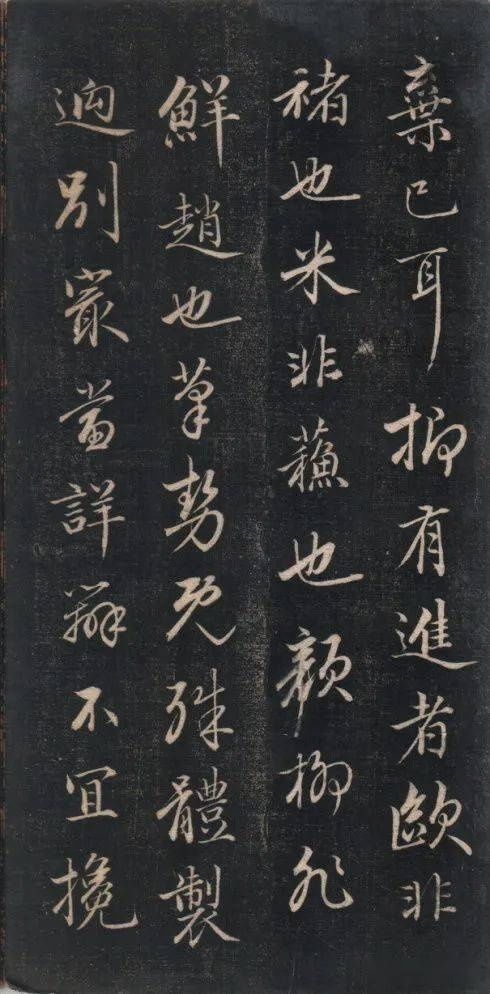 棄已耳抑有進者歐非
褚也米非蘓也顏柳非
鮮趙也筆勢既殊體製
逈別最當詳辨不宜攙